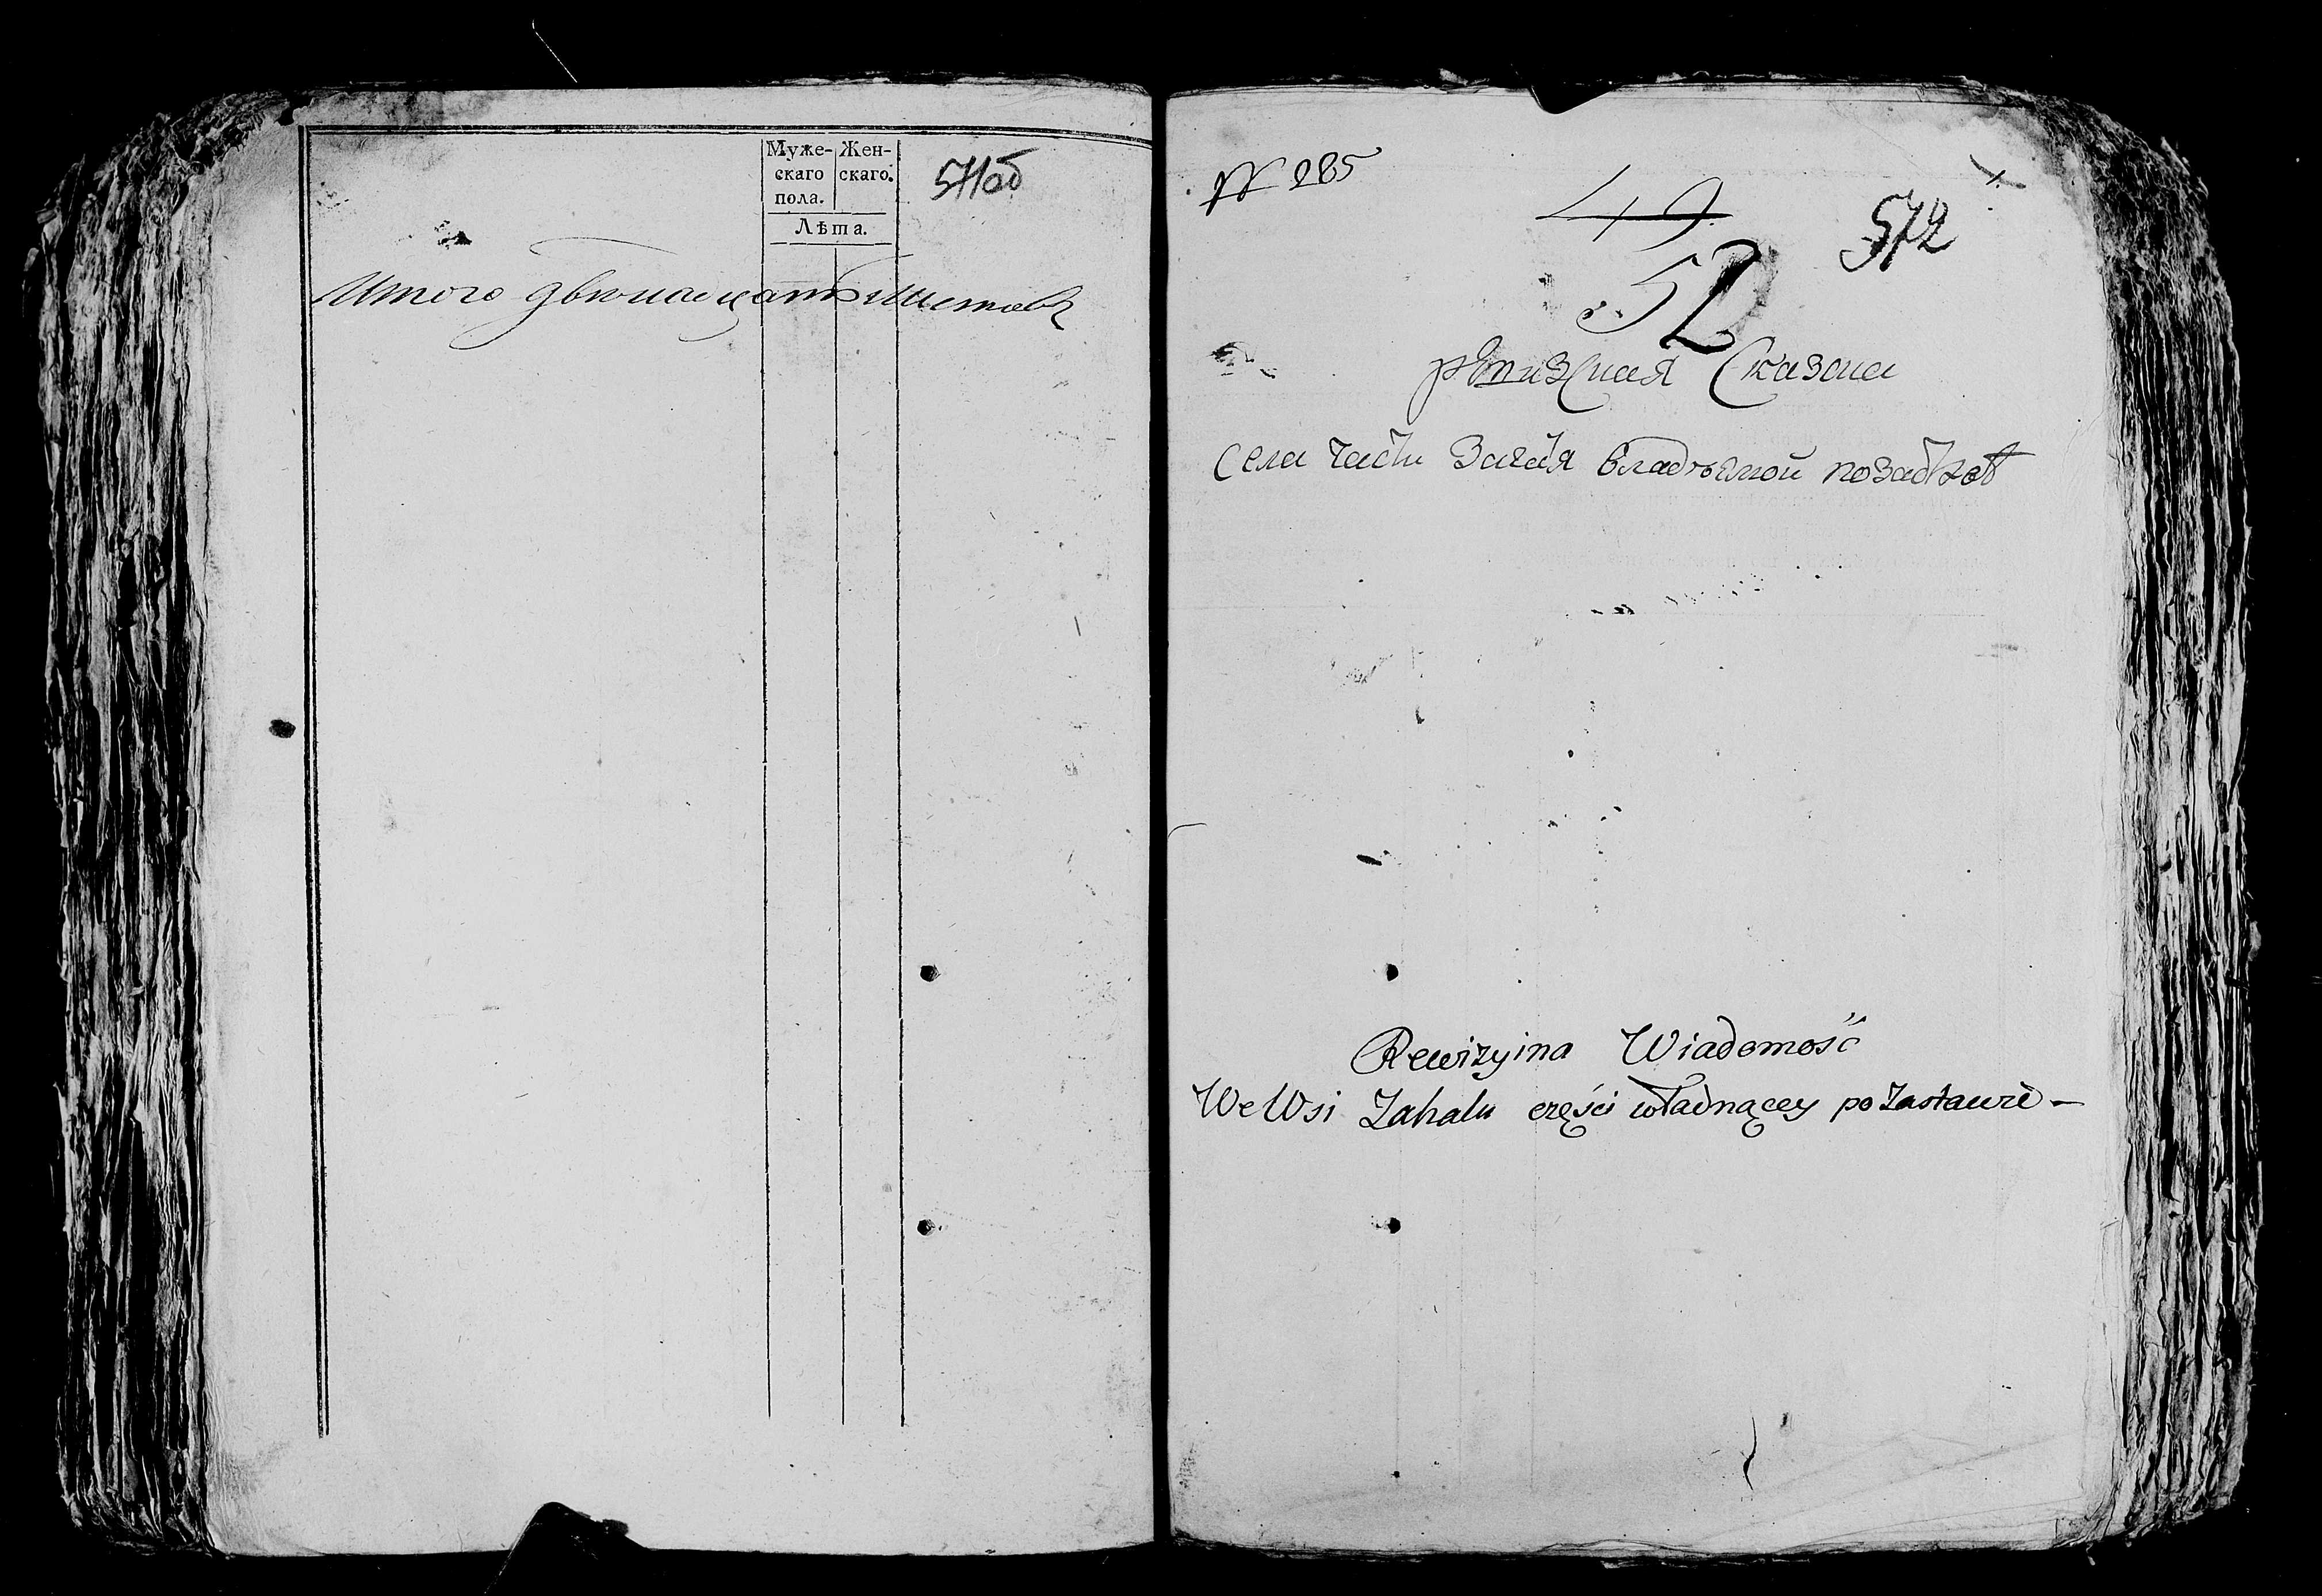 Муже- Жен-
скаго скаго.
пола.
Лѣта.
571об
Итого двѣнадцать листовъ
№ 285
49
572
52
ревизская Сказка
Села части Загаля владѣемой по
Rewizyina Wiadomość
We Wsi Zahalu części władnącey po Zastawie –